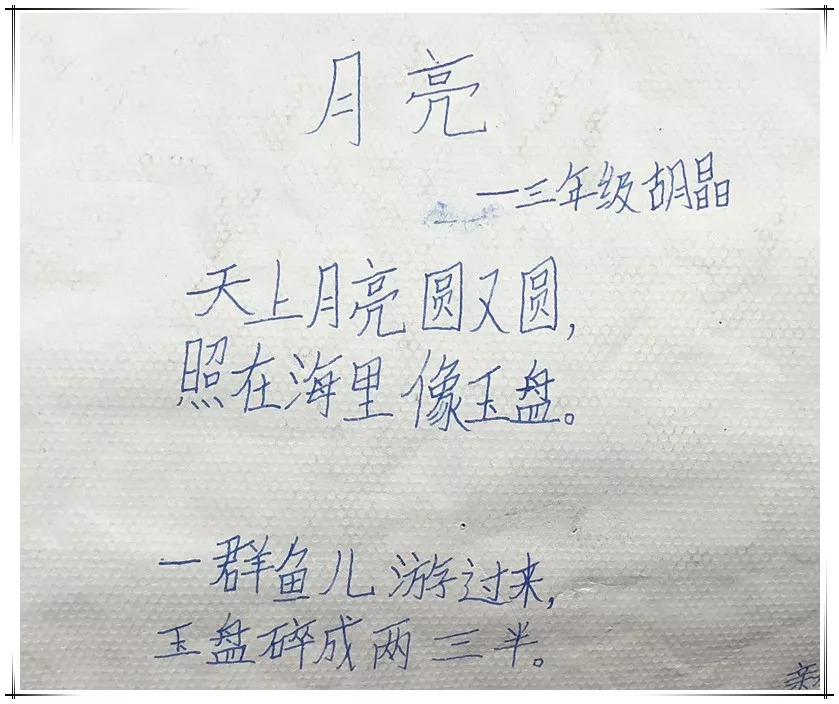 月亮
一三年级胡晶
天上月亮圆又圆,
照在海里像玉盘。
一群鱼儿游过来,
玉盘碎成两三半。